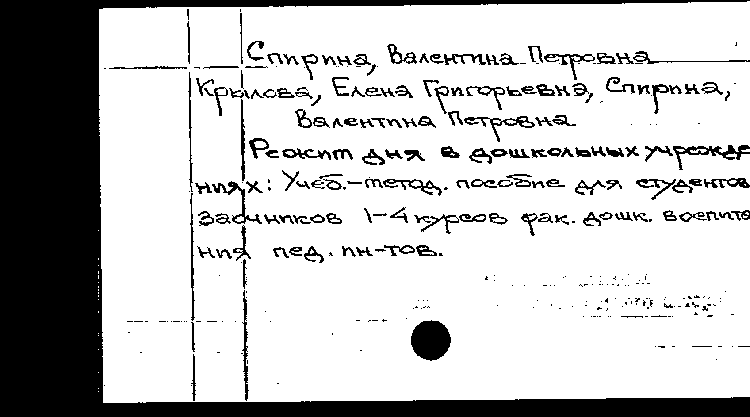 Спирина, Валентина Петровна
Крылова, Елена Григорьевна, Спирина,
Валентина Петровна
Режим дня в дошкольных учрежде
ниях: Учеб.-метод. пособие для студентов
заочников 1-4 курсов фак. дошк. воспита
ния пед. ин-тов.